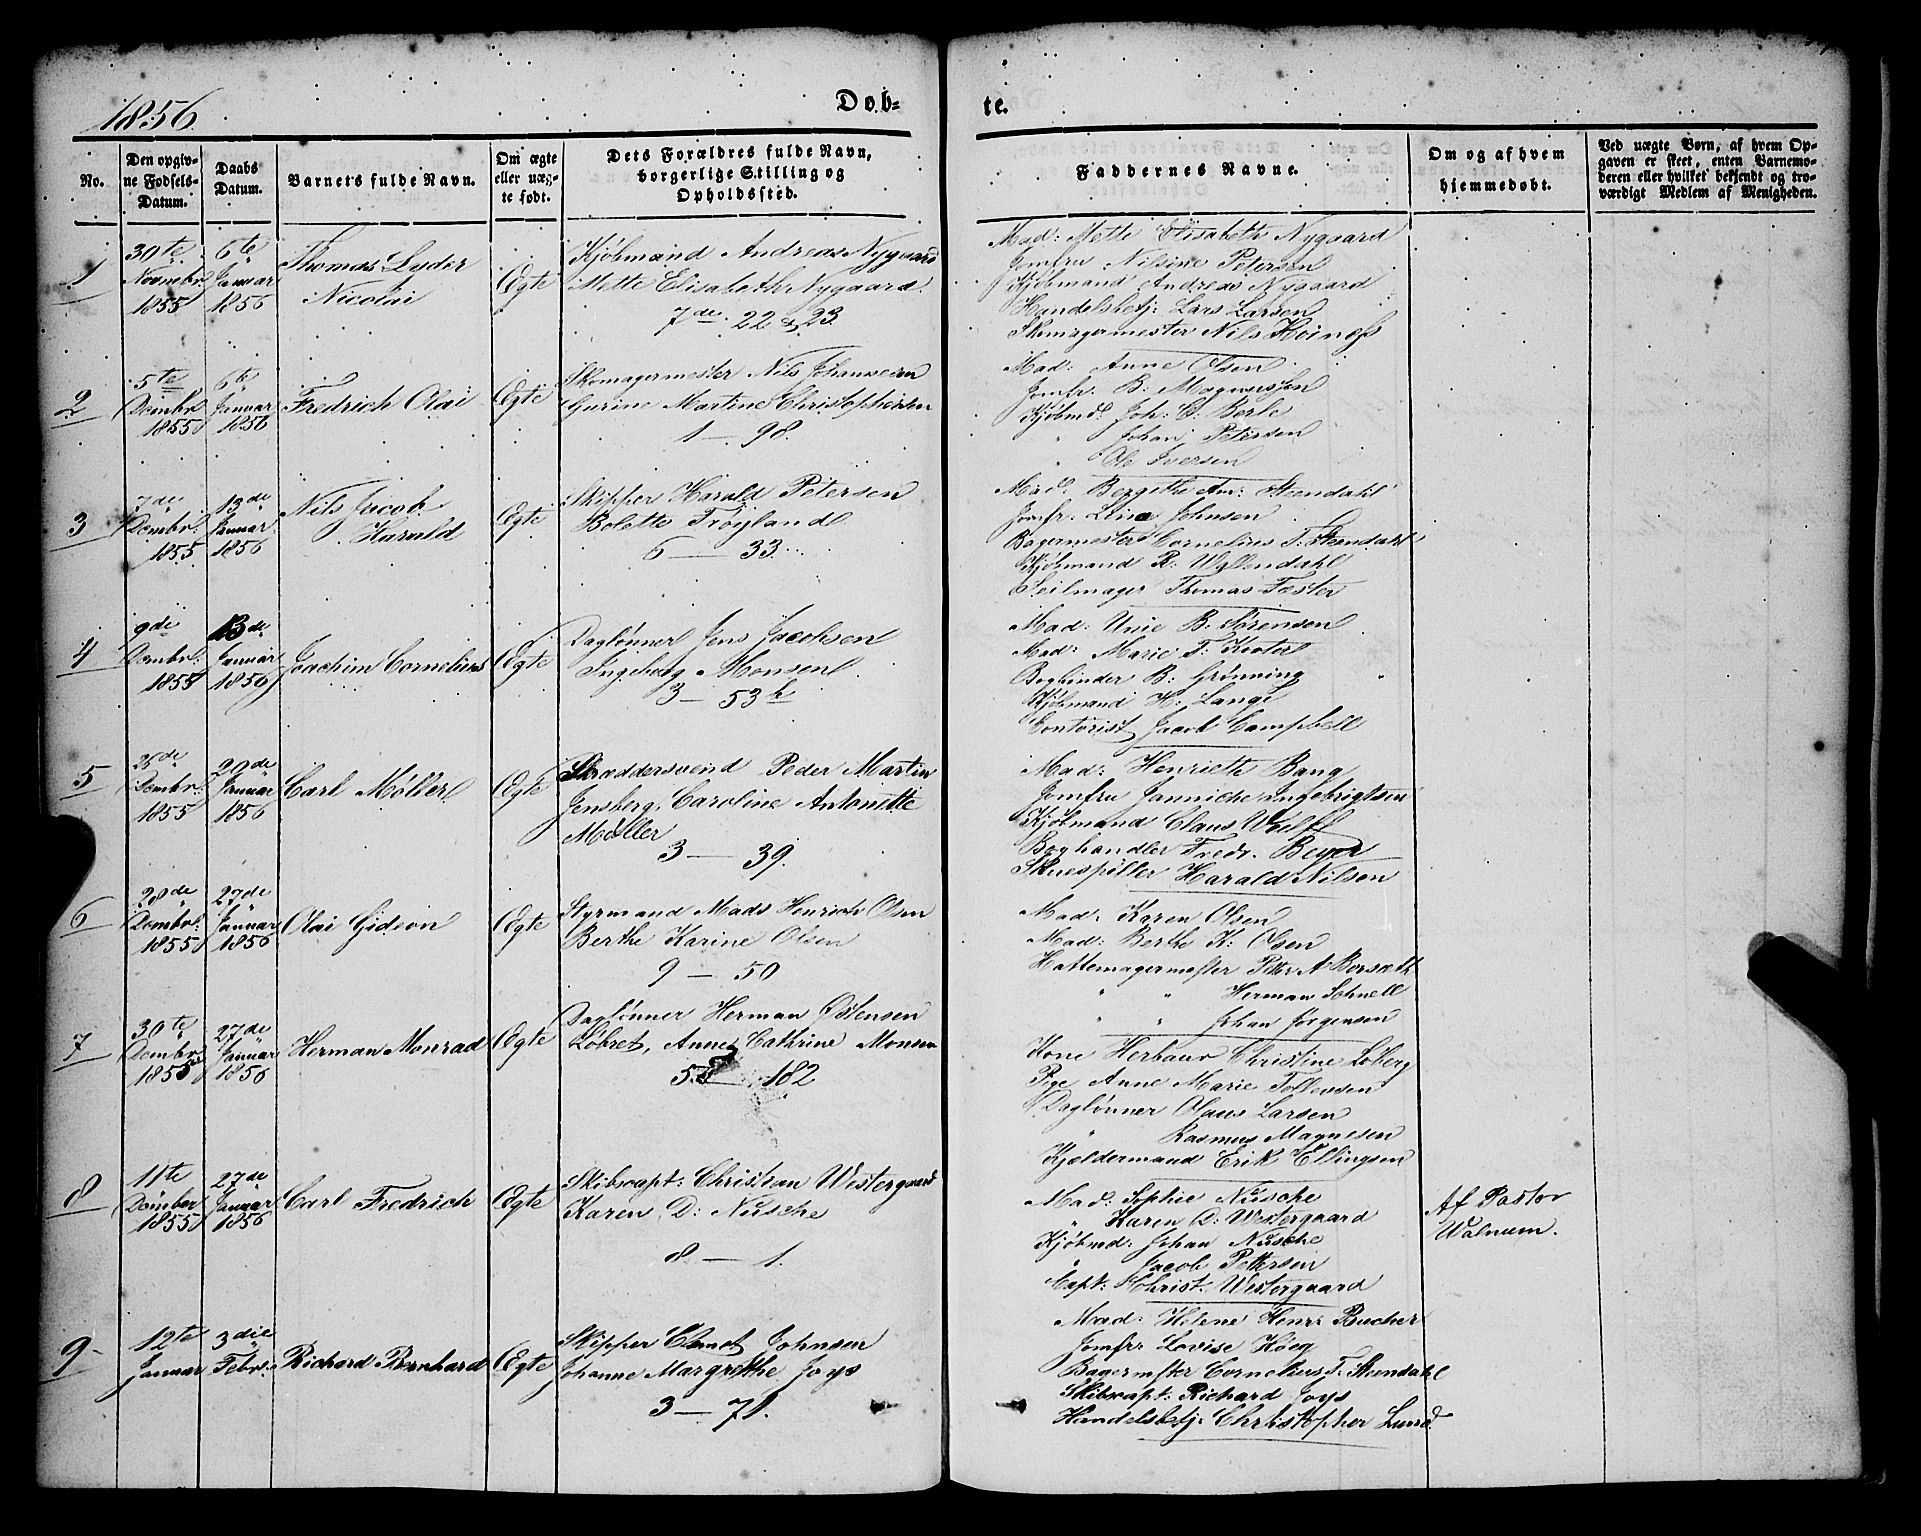 1856.
Døb-
te.
No.
Den opgiv-
ne Fødsels-
Datum.
Daabs
Datum.
Barnets fulde Navn.
Om ægte
eller uæg-
te født.
Dets Forældres fulde Navn,
borgerlige Stilling og
Opholdssted.
Faddernes Navne.
Om og af hvem
hjemmedøbt.
Ved uægte Børn, af hvem Op-
gaven er skeet, enten Barnemo-
deren eller hvilket bekjendt og tro-
værdigt Medlem af Menigheden.
1
30te
Novmbr.
1855
6te
Januar
1856
Thomas Lyder
Nicolai
Ægte
Kjöbmand Andreas Nygaard
Mette Elisabeth Nygaard.
7de. 22 & 23.
Mad: Mette Elisabeth Nygaard
Jomfru Nilsine Petersen
Kjöbmand Andreas Nygaard
Handelsbetj: Lars Larsen
Skomagermester Nils Hoiness
2
5te
Dcmbr.
1855
6te
Januar
1856
Fredrich Olai
Ægte
Skomagermester Nils Johannesen
Gurine Martine Christophersen
1 — 98.
Mad: Anne Olsen
Jomfr. B: Magnussen
Kjöbmd. Joh: C: Berle
" Johan Petersen
" Ole Iversen
3
7de
Dcmbr.
1855
13de
Januar
1856
Nils Jacob
Harald
Ægte
Skipper Harald Petersen
Bolette Fröyland
6 — 33.
Mad. Bergithe Am: Steendahl
Jomfr. Lina Johnsen
Bagermester Cornelius T. Steendahl
Kjöbmand R: Wallendahl
Seilmager Thomas Fester
4
9de
Dcmbr.
1855
13de
Januar
1856
Joachim Cornelius
Ægte
Daglönner Jens Jacobsen
Ingeborg Monsen
3 — 53 b
Mad: Unie B: Sörensen
Mad: Marie T. Kooter
Bogbinder B: Grönning
Kjöbmand H: Lange
Contorist Jacob Campbell
5
25de
Dcmbr.
1855
20de
Januar
1856
Carl Möller
Ægte
Skræddersvend Peder Martin
Jensberg, Caroline Antonette
Möller
3 — 39.
Mad: Henriette Bang
Jomfru Janniche Ingebrigtsen
Kjöbmand Claus Wulff
Boghandler Fredr. Beyer
Skuespiller Harald Nilsen
6
28de
Dcmbr.
1855
27de
Januar
1856
Olai Gideon
Ægte
Styrmand Mads Henrich Olsen
Berthe Karine Olsen
9 — 50
Mad: Karen Olsen
Mad: Berthe K: Olsen
Hattemagermester Petter A Borsæth
" " Herman Schnell
" " Johan Jörgensen
7
30te
Dcmbr.
1855
27de
Januar
1856
Herman Monrad
Ægte
Daglönner Herman Östensen
Löbret, Anne Cathrine Monsen
182
Kone Herbaur Christine Loberg
Pige Anne Marie Tollensen
Daglönner Olaus Larsen
" Rasmus Magnesen
Kjældermand Erik Ellingsen
8
11te
Dcmber
1855
27de
Januar
1856
Carl Fredrich
Ægte
Skibscapt: Christian Westergaard
Karen D: Nitsche
8 — 1.
Mad: Sophie Nitsche
" Karen D: Westergaard
Kjöbmd: Johan Nitsche
" Jacob Pettersen
Capt: Christ. Westergaard
Af Pastor
Walnum.
9
12te
Januar
3die
Febr.
Richard Bernhard
Ægte
Skipper Clnet Johnsen
Johanne Margrethe Joys
3 — 71.
Mad: Helene Henr: Bucher
Jomfr: Lovise Höeg
Bagermester Cornelius T. Steendahl
Skibscapt: Richard Joys
Handelsbetj: Christopher Lund.